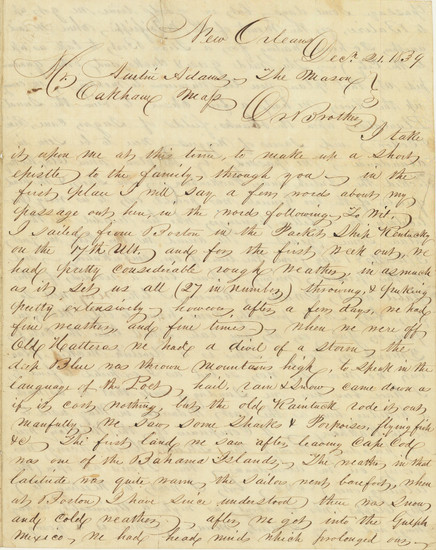 New Orleans
Decr. 21. 1839
Mr. Austin Adams, The Mason
Oakham Mass
Dr Brother,
I take
it upon me at this time, to make up a short
epistle to the family through you — in the
first place I will say a few words about my
passage out here, in the words following. To Wit.
I sailed from Boston in the Packet Ship Kentucky
on the 7th Ult. and for the first week out, we
had pretty considerable rough weather, in as much
as it set us all (27 in number) throwing, & puking
pretty extensively, however, after a few days, we had
fine weather, and fine times, when we were off
Old Hatteras we had a divil of a storm, the
deep Blue was thrown mountains high, to speak in the
language of the Poet, hail, rain & snow came down as
if it cost nothing, but the old Kaintuck rode it out
manfully, we saw some Sharks & Porpoises, flying fish
&c The first land we saw after leaving Cape Cod
was one of the Bahama Islands, The weather in that
latitude was quite warm, the sailors went barefoot, when
at Boston I have since understood there was snow
and cold weather, after we got into the Gulph
Mexico, we had head winds which prolonged our